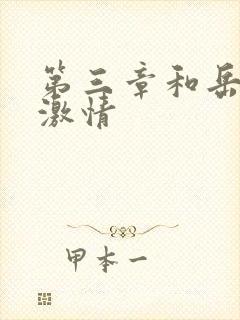 第三章和岳
激情
甲本一